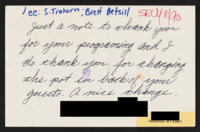 cc: S. Trahern, Brett Betsill
Just a note to thank you
for your programing and I
do thank you for changing
the pot in back of your
guests. A nice change.